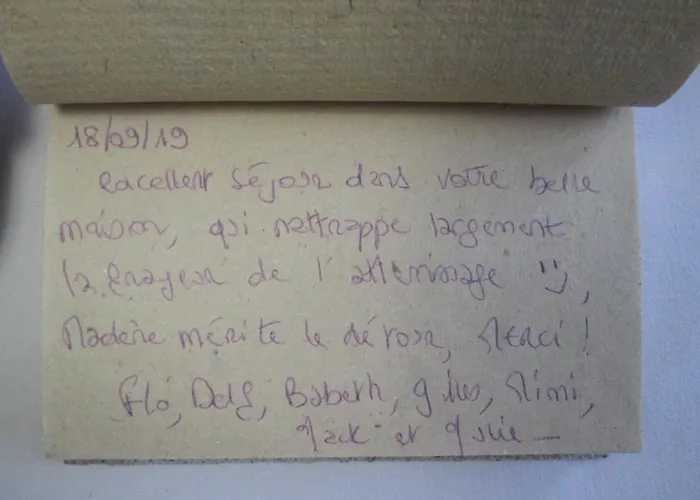 18/09/19
excellent séjour dans votre belle
maison, qui rattrappe largement
la frayeur de l'atterrissage :),
Madère mérite le détour, Merci !
Flo, Delf, Babeth, gilles, Mimi,
et